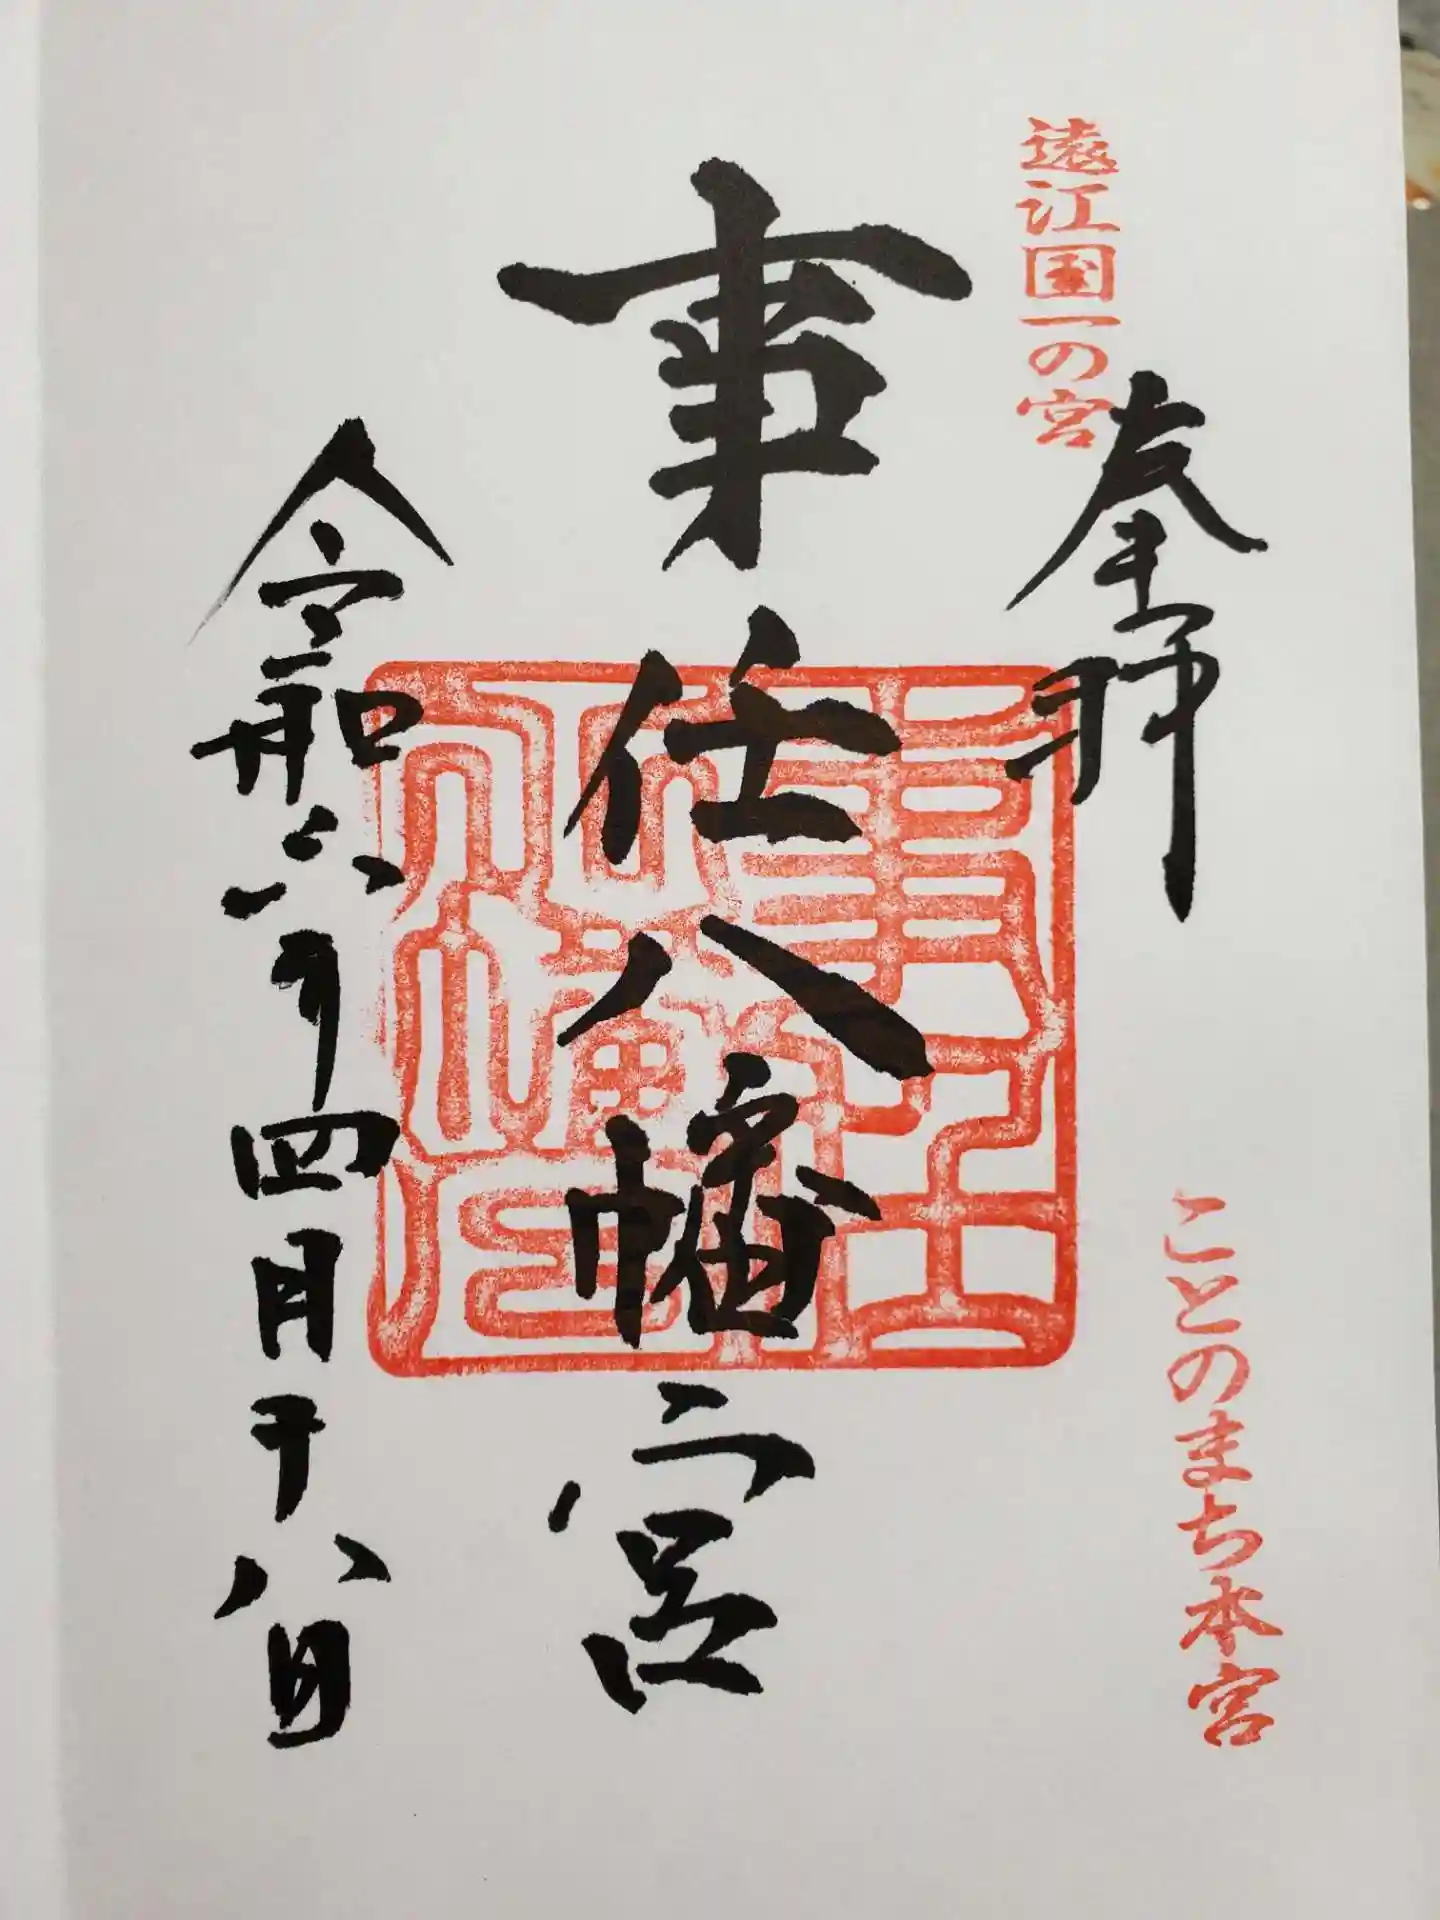 遠江国一の宮
奉拝
ことのまち本宮
事任八幡宮
令和六年四月十八日